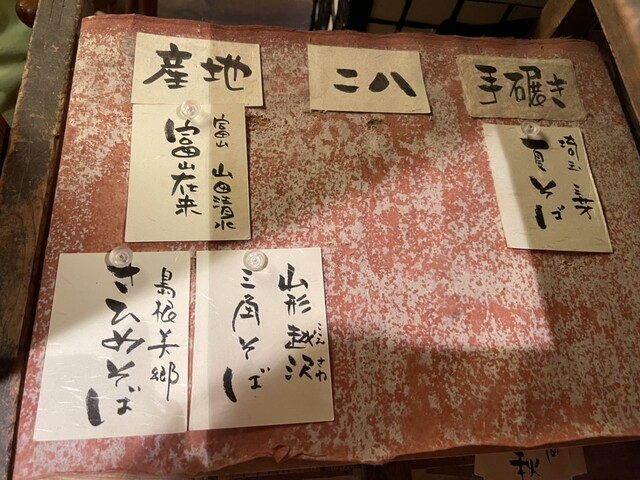 産地
二八
手碾き
富山 山田清水
富山在来
埼玉 三芳
夏そば
山形越沢
こえ さわ
三角そば
島根美郷
さひめそば
秋